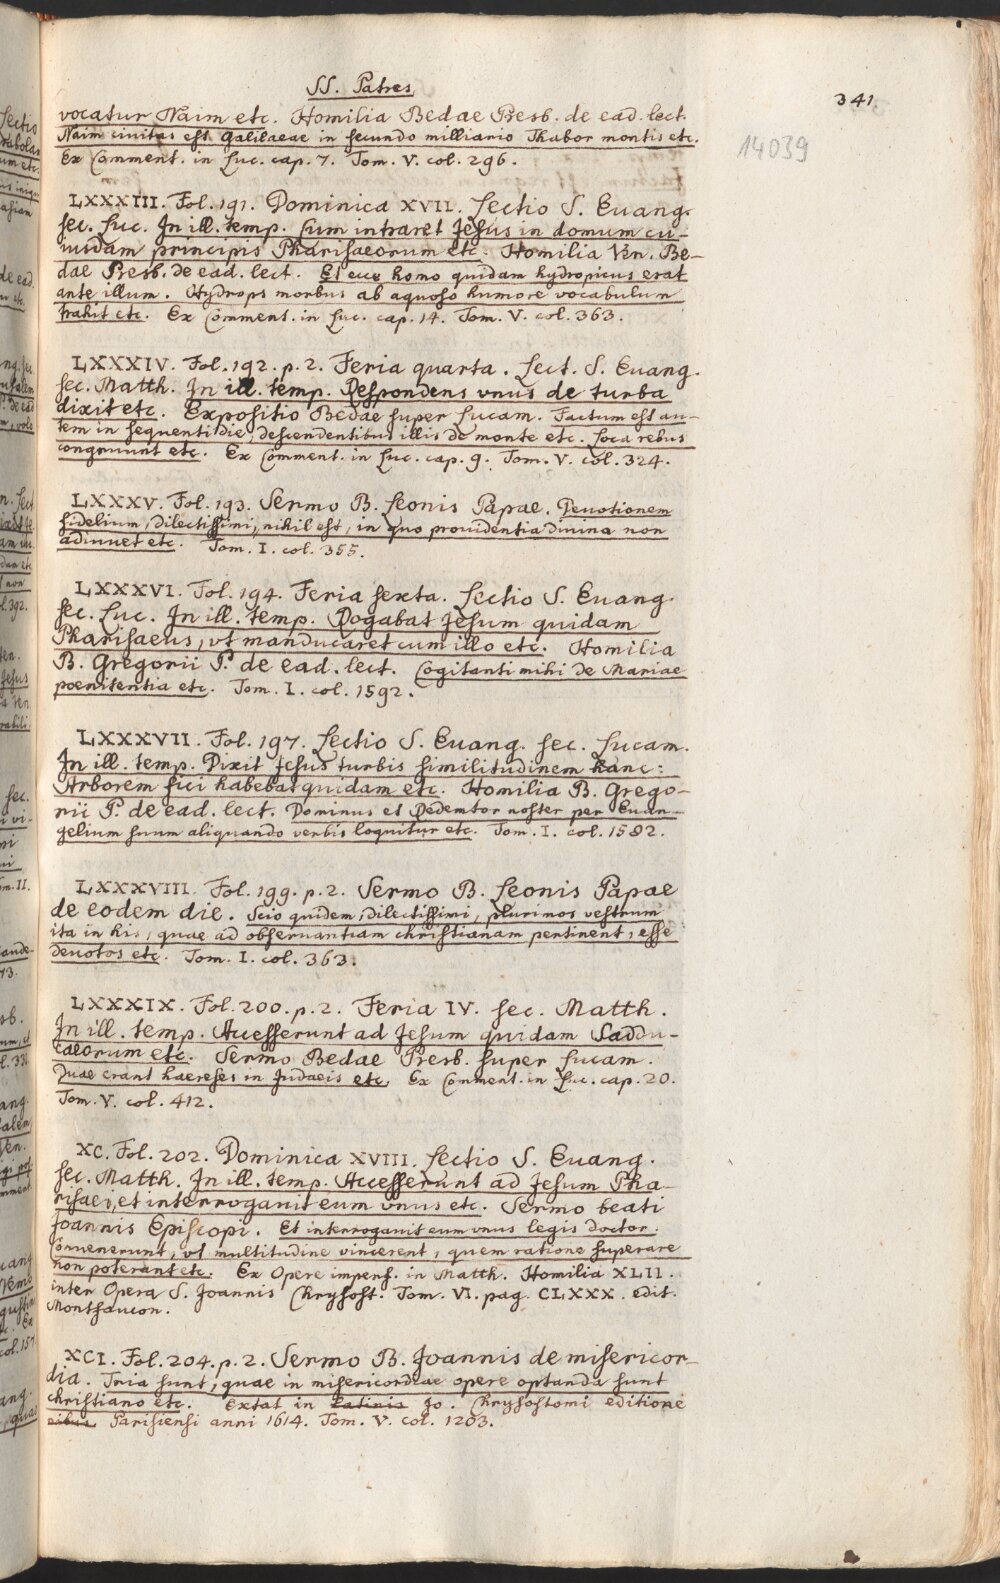 SS. Patres
341
14039
vocatur Naim etc. Homilia Bedae Presb. de ead. lect.
Naim civitas est Galilaeae in secundo milliario Thabor montis etc.
Ex Comment. in Luc. cap. 7. Tom. V. col. 296.
LXXXIII. Fol. 191. Dominica XVII. Lectio S. Euang.
sec. Luc. In ill. temp. Cum intraret Jesus in domum cu-
iusdam principis Pharisaeorum etc. Homilia Ven. Be-
dae Presb. de ead. lect. Et ecce homo quidam hydropicus erat
ante illum. Hydrops morbus ab aquoso humore vocabulum
trahit etc. Ex Comment. in Luc. cap. 14. Tom. V. col. 363.
LXXXIV. Fol. 192. p. 2. Feria quarta. Lect. S. Euang.
sec. Matth. In ill. temp. Respondens vnus de turba
dixit etc. Expositio Bedae super Lucam. Factum est au-
tem in sequenti die, descendentibus illis de monte etc. Loca rebus
congruunt etc. Ex Comment. in Luc. cap. 9. Tom. V. col. 324.
LXXXV. Fol. 193. Sermo B. Leonis Papae. Deuotionem
fidelium, dilectissimi, nihil est, in quo prouidentia diuina non
adiuuet etc. Tom. I. col. 355.
LXXXVI. Fol. 194. Feria sexta. Lectio S. Euang.
sec. Luc. In ill. temp. Rogabat Jesum quidam
Pharisaeus, vt manducaret cum illo etc. Homilia
B. Gregorii P. de ead. lect. Cogitanti mihi de Mariae
poenitentia etc. Tom. I. col. 1592.
LXXXVII. Fol. 197. Lectio S. Euang. sec. Lucam.
In ill. temp. Dixit Jesus turbis similitudinem hanc:
Arborem fici habebat quidam etc. Homilia B. Grego-
rii P. de ead. lect. Dominus et Redemtor noster per Euan-
gelium suum aliquando verbis loquitur etc. Tom. I. col. 1582.
LXXXVIII. Fol. 199. p. 2. Sermo B. Leonis Papae
de eodem die. Scio quidem, dilectissimi, plurimos vestrum
ita in his, quae ad obseruantiam christianam pertinent, esse
deuotos etc. Tom. I. col. 363.
LXXXIX. Fol. 200. p. 2. Feria IV. sec. Matth.
In ill. temp. Accesserunt ad Jesum quidam Saddu-
caeorum etc. Sermo Bedae Presb. super Lucam.
Duae erant haereses in Judaeis etc. Ex Comment. in Luc. cap. 20.
Tom. V. col. 412.
XC. Fol. 202. Dominica XVIII. Lectio S. Euang.
sec. Matth. In ill. temp. Accesserunt ad Jesum Pha-
risaei, et interrogauit eum vnus etc. Sermo beati
Joannis Episcopi. Et interrogauit eum vnus legis doctor.
Conuenerunt, vt multitudine vincerent, quem ratione superare
non poterant etc. Ex Opere imperf. in Matth. Homilia XLII.
inter Opera S. Joannis Chrysost. Tom. VI. pag. CLXXX. edit.
Montfaucon.
XCI. Fol. 204. p. 2. Sermo B. Joannis de misericor-
dia. Tria sunt, quae in misericordiae opere optanda sunt
christiano etc. Extat in Latinis Jo. Chrysostomi editione
nibus Parisiensi anni 1614. Tom. V. col. 1203.